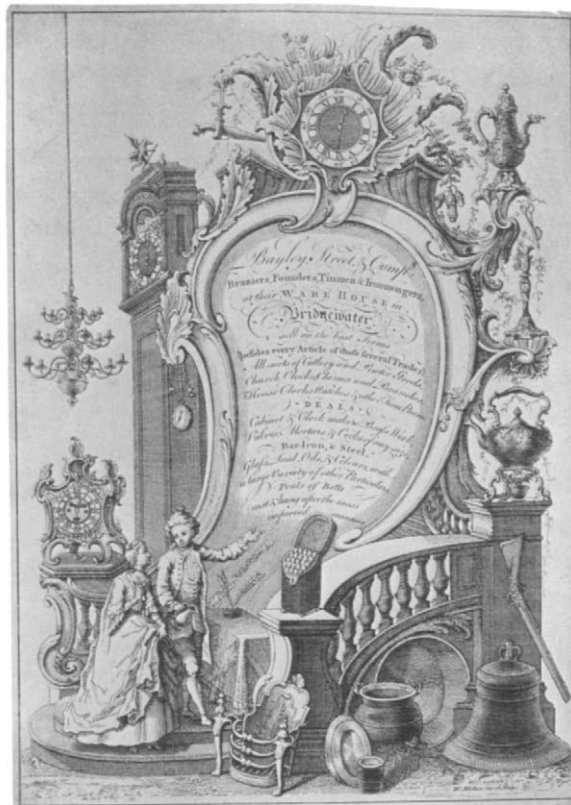 Bayley, Street, & Compy.
Braziers, Founders, Tinmen & Ironmongers,
at their WARE HOUSE in
Bridgewater
sell on the best Terms
(besides every Article of those several Trades)
All sorts of Cutlery and Pewter Goods,
Church Clocks, Chimes and
House Clocks, Watches & other
DEALS
Cabinet & Clock makers Brass Work,
Mortars, & Cocks of any size,
Bar-Iron, & Steel,
Glass, Lead, Oils, & Colours, with
a large Variety of other Particulars.
Peals of Bells
cast & hung after the most
improved